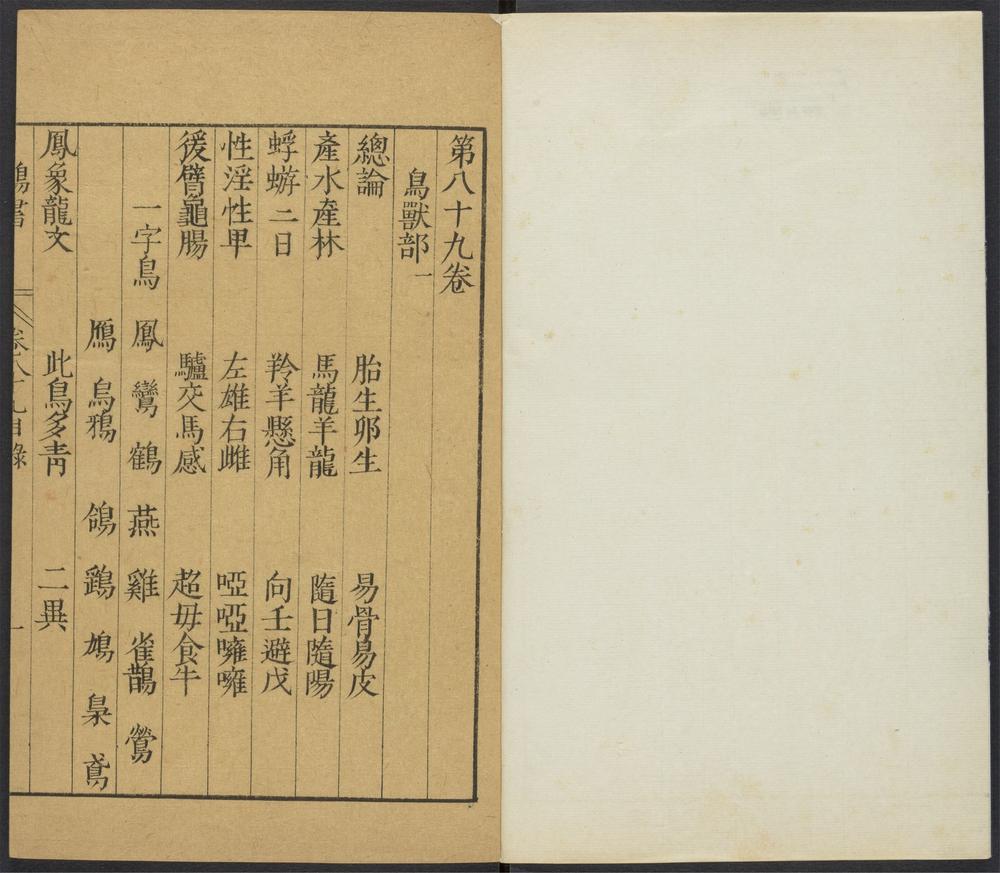 第八十九卷
鳥獸部一
總論 胎生卵生 易骨易皮
產水產林 馬龍羊龍 隨日隨陽
蜉蝣二日 羚羊懸角 向壬避戊
性淫性甲 左雄右雌 啞啞嗈嗈
猨臂龜腸 驢交馬感 超毋食牛
一字鳥 鳳 鸞 鶴 燕 雞 雀 鵲 鶯
鴈 烏鴉 鴿 鷂 鳩 梟 鳶
鳳象龍文 此鳥多青 二異
卷八十九目錄 一